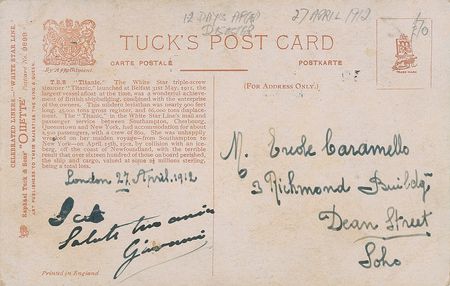 12 DAYS AFTER
DISASTER
27 APRIL 1912
£70
TUCK'S POST CARD
CARTE POSTALE
POSTKARTE
By Appointment
(FOR ADDRESS ONLY.)
CELEBRATED LINERS.—"WHITE STAR LINE"
Raphael Tuck & Sons' "OILETTE" Postcard No. 9898
ART PUBLISHERS TO THEIR MAJESTIES THE KING & QUEEN.
T.S.S "Titanic." The White Star triple-screw
steamer "Titanic," launched at Belfast 31st May, 1911, the
largest vessel afloat at the time, was a wonderful achieve-
ment of British shipbuilding, combined with the enterprise
of the owners. This modern leviathan was nearly 900 feet
long, 45,000 tons gross register, and 66,000 tons displace-
ment. The "Titanic," in the White Star Line's mail and
passenger service between Southampton, Cherbourg,
Queenstown and New York, had accommodation for about
2,500 passengers, with a crew of 860. She was unhappily
wrecked on her maiden voyage—from Southampton to
New York—on April 15th, 1912, by collision with an ice-
berg, off the coast of Newfoundland, with the terrible
result that over sixteen hundred of those on board perished,
the ship and cargo, valued at some 2½ millions sterling
being a total loss.
London 27. April. 1912
Saluti
Giovanni
M. Ercole Caramello
3 Richmond Buildgs
Dean Street
Soho
Printed in England.